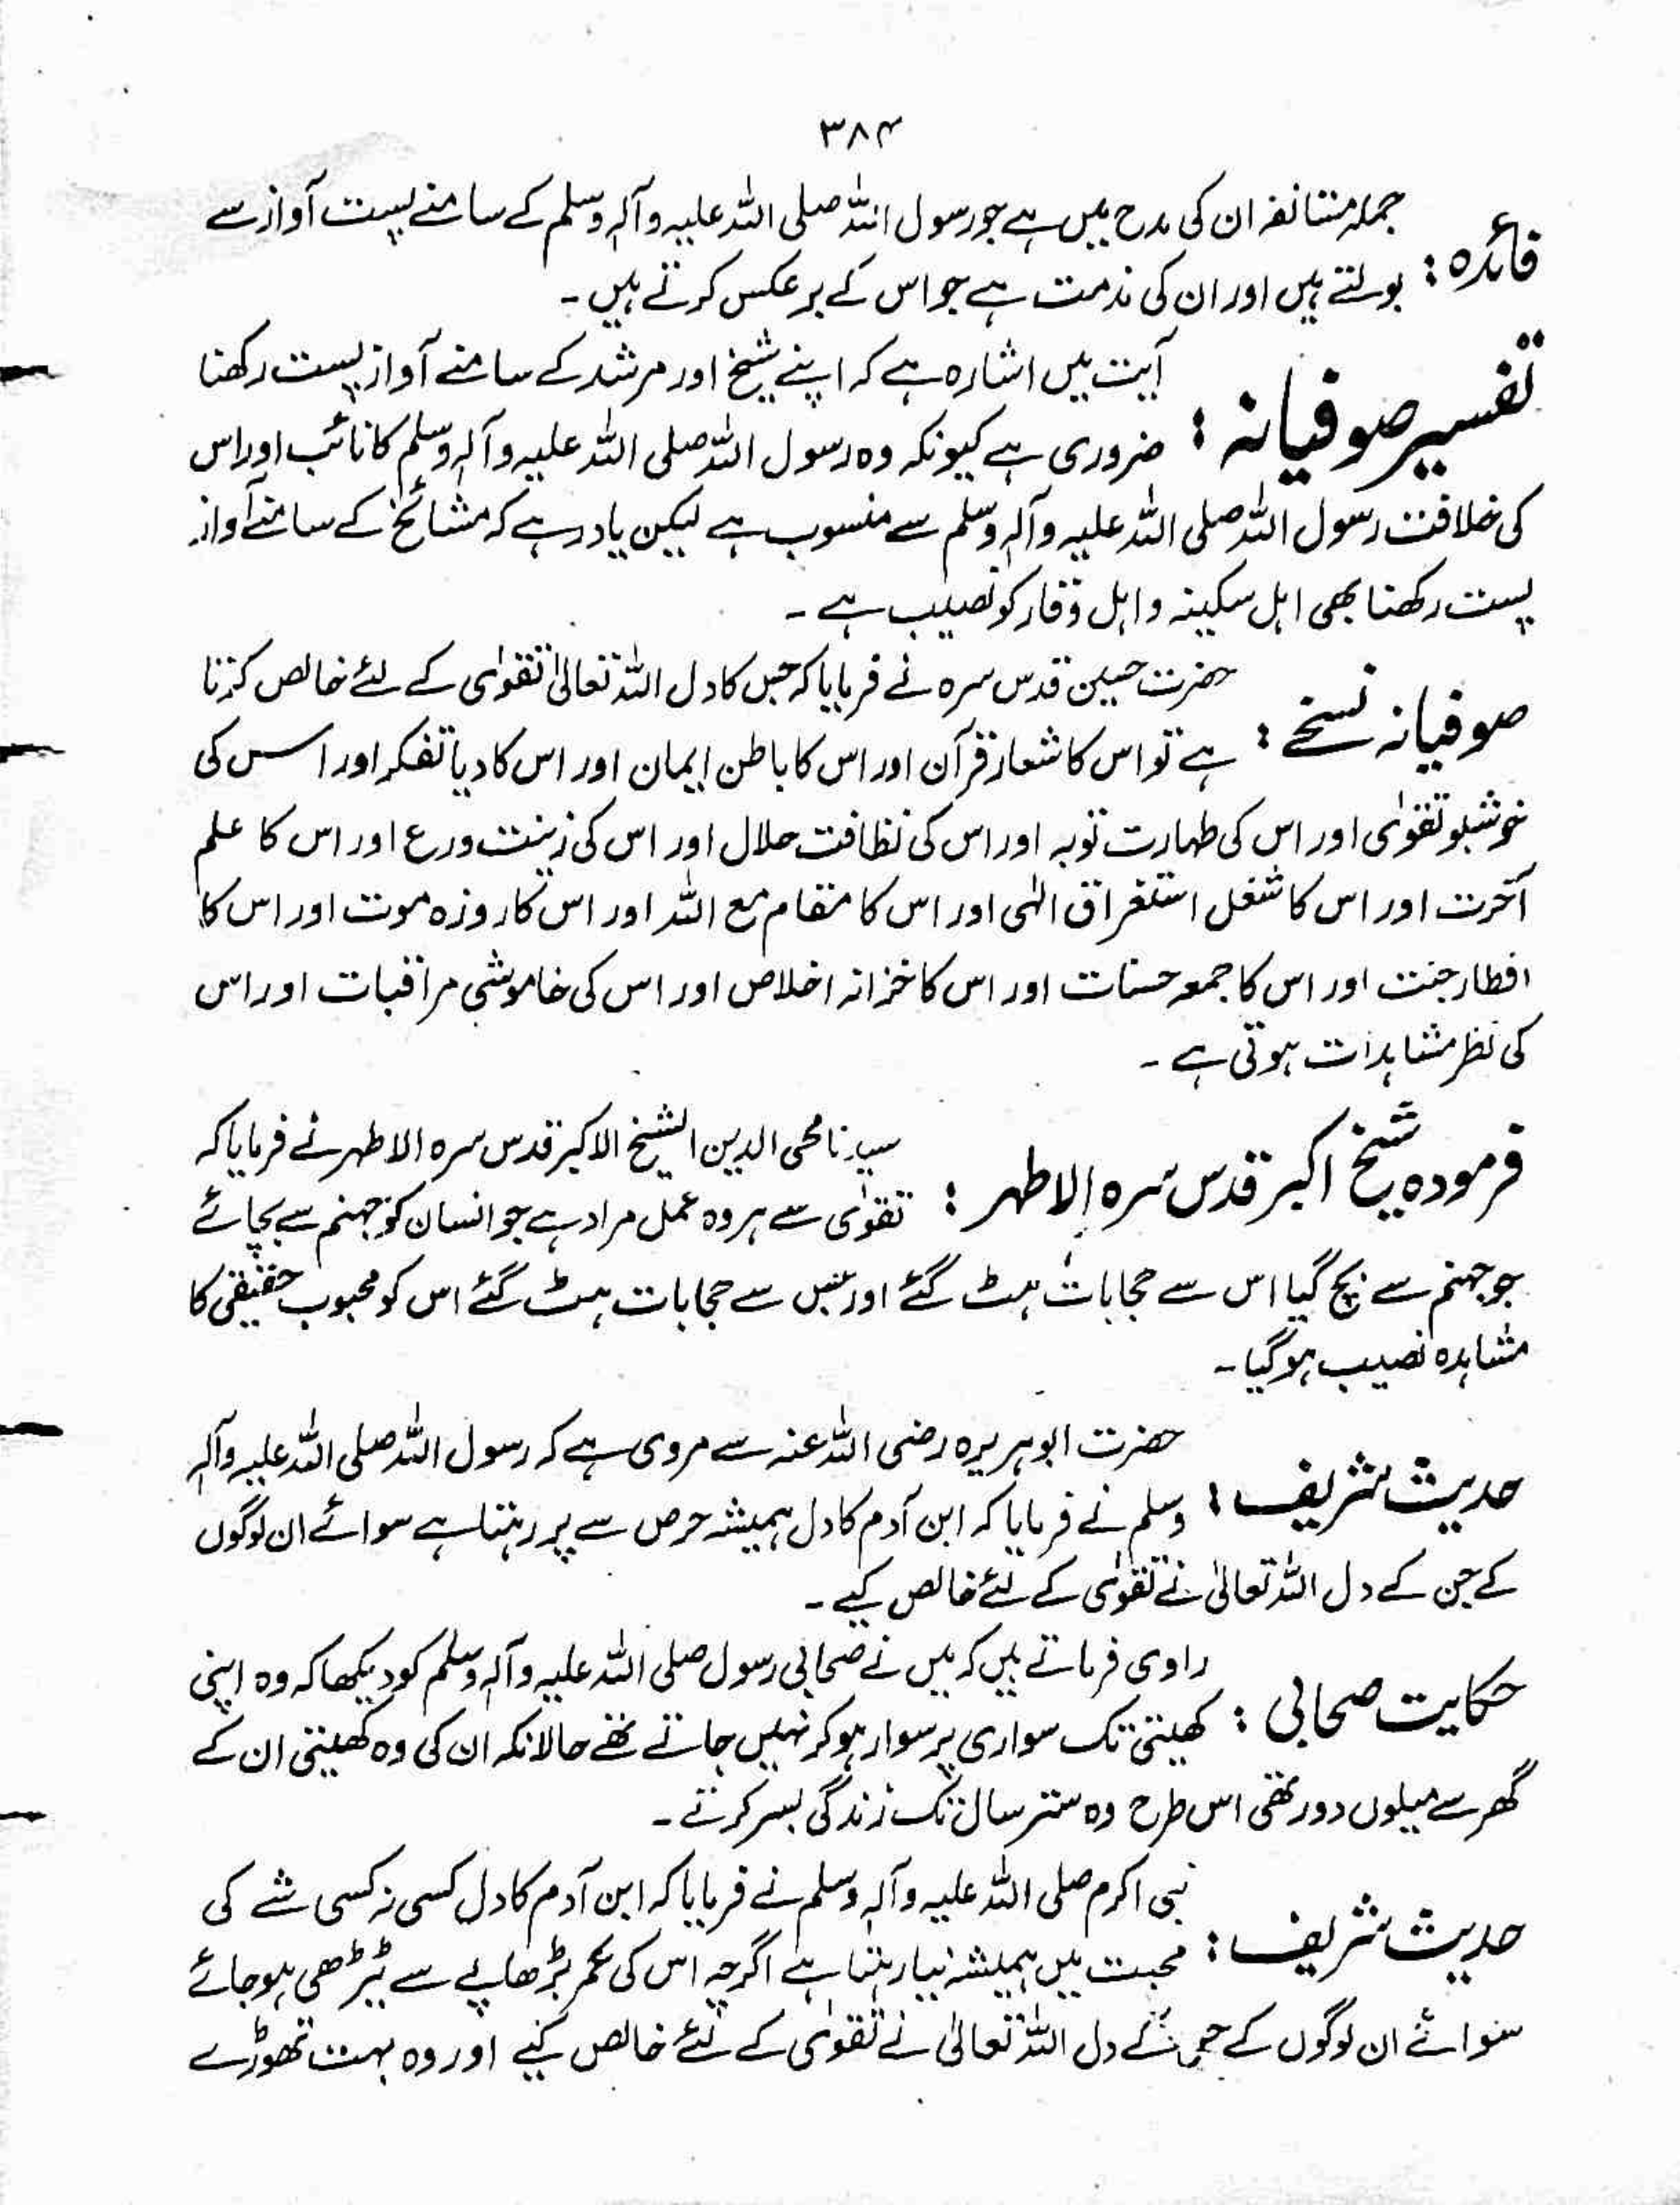 ۳۸۴
جملہ مستانفہ ان کی مدح میں ہے جو رسول اللہ صلی اللہ علیہ وآلہٖ وسلم کے سامنے پست آواز سے
فائدہ : بولتے ہیں اور ان کی مذمت ہے جو اس کے برعکس کرتے ہیں ۔
آیت میں اشارہ ہے کہ اپنے شیخ اور مرشد کے سامنے آواز پست رکھنا
تفسیر صوفیانہ : ضروری ہے کیونکہ وہ رسول اللہ صلی اللہ علیہ وآلہٖ وسلم کا نائب اور اس
کی خلافت رسول اللہ صلی اللہ علیہ وآلہٖ وسلم سے منسوب ہے لیکن یاد رہے کہ مشائخ کے سامنے آواز
پست رکھنا بھی اہل سکینہ و اہل وقار کو نصیب ہے ۔
حضرت حسین قدس سرہ نے فرمایا کہ جس کا دل اللہ تعالیٰ تقویٰ کے لئے خالص کرتا
صوفیانہ نسخے : ہے تو اس کا شعار قرآن اور اس کا باطن ایمان اور اس کا دیا تفکر اور اس کی
خوشبو تقویٰ اور اس کی طہارت توبہ اور اس کی نظافت حلال اور اس کی زینت ورع اور اس کا علم
آخرت اور اس کا شغل استغراق الٰہی اور اس کا مقام مع اللہ اور اس کا روزہ موت اور اس کا
افطار جنت اور اس کا جمعہ حسنات اور اس کا خزانہ اخلاص اور اس کی خاموشی مراقبات اور اس
کی نظر مشاہدات ہوتی ہے ۔
سیدنا محی الدین الشیخ الاکبر قدس سرہ الاطہر نے فرمایا کہ
فرمودہ شیخ اکبر قدس سرہ الاطہر : تقویٰ سے ہر وہ عمل مراد ہے جو انسان کو جہنم سے بچائے
جو جہنم سے بچ گیا اس سے حجابات ہٹ گئے اور جس سے حجابات ہٹ گئے اس کو محبوب حقیقی کا
مشاہدہ نصیب ہو گیا ۔
حضرت ابو ہریرہ رضی اللہ عنہ سے مروی ہے کہ رسول اللہ صلی اللہ علیہ وآلہٖ
حدیث شریف : وسلم نے فرمایا کہ ابن آدم کا دل ہمیشہ حرص سے پر رہتا ہے سوائے ان لوگوں
کے جن کے دل اللہ تعالیٰ نے تقویٰ کے لئے خالص کیے ۔
راوی فرماتے ہیں کہ میں نے صحابی رسول صلی اللہ علیہ وآلہٖ وسلم کو دیکھا کہ وہ اپنی
حکایت صحابی : کھیتی تک سواری پر سوار ہو کر نہیں جاتے تھے حالانکہ ان کی وہ کھیتی ان کے
گھر سے میلوں دور تھی اس طرح وہ ستر سال تک زندگی بسر کرتے ۔
نبی اکرم صلی اللہ علیہ وآلہٖ وسلم نے فرمایا کہ ابن آدم کا دل کسی نہ کسی شے کی
حدیث شریف : محبت میں ہمیشہ تیار رہتا ہے اگرچہ اس کی عمر بڑھاپے سے ٹیڑھی ہو جائے
سوائے ان لوگوں کے جن کے دل اللہ تعالیٰ نے تقویٰ کے لئے خالص کیے اور وہ بہت تھوڑے